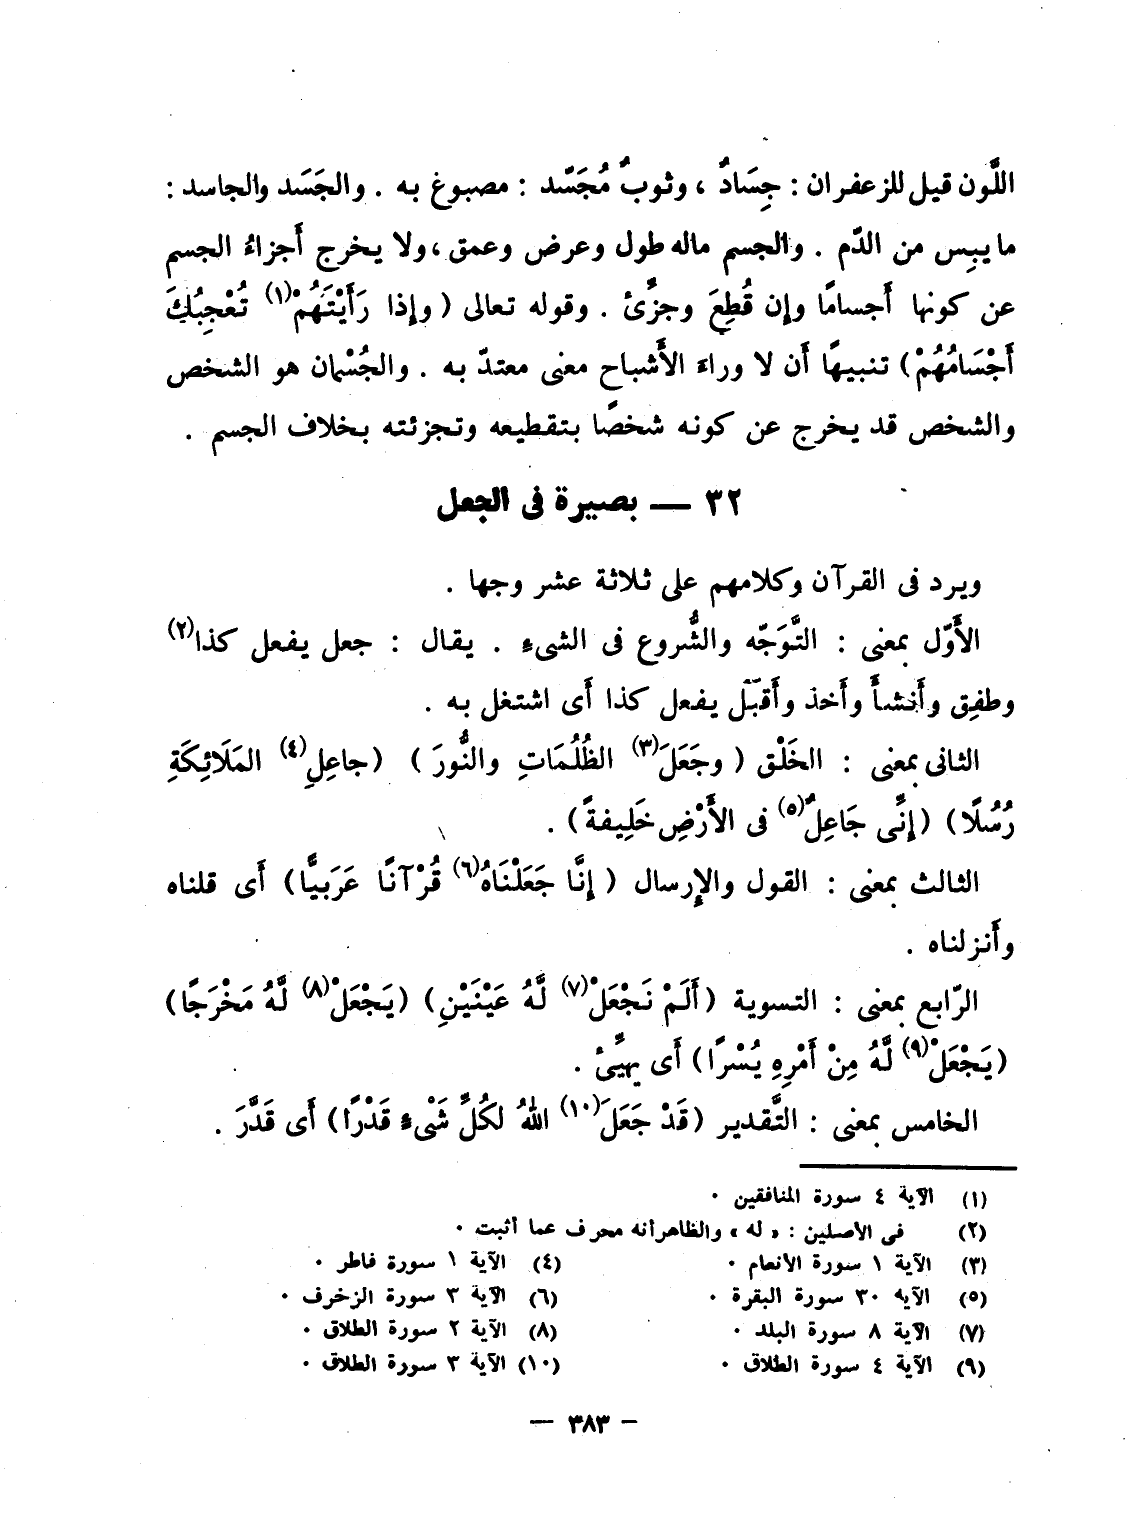 اللَّون قيل للزعفران : جِسَادٌ ، وثوبٌ مُجَسّد : مصبوغ به . والجَسَد والجاسد :
ما يبِس من الدّم . والجسم ماله طول وعرض وعمق ، ولا يخرج أَجزاءُ الجسم
عن كونها أَجسامًا وإِن قُطِعَ وجزِّئ . وقوله تعالى ( وإذا رَأَيْتَهُمْ(١) تُعْجِبُكَ
أَجْسَامُهُمْ ) تنبيهًا أَن لا وراءَ الأَشباح معنى معتدّ به . والجُسْمان هو الشخص
والشخص قد يخرج عن كونه شخصًا بتقطيعه وتجزئته بخلاف الجسم .
٣٢ — بصيرة فى الجعل
ويرد فى القرآن وكلامهم على ثلاثة عشر وجها .
الأَوّل بمعنى : التَّوَجّه والشُّروع فى الشىءِ . يقال : جعل يفعل كذا(٢)
وطفِق وأَنشأَ وأَخذ وأَقبَل يفعل كذا أَى اشتغل به .
الثانى بمعنى : الخَلْق ( وجَعَلَ(٣) الظُلُمَاتِ والنُّورَ ) (جاعِلِ(٤) المَلَائِكَةِ
رُسُلًا) (إِنِّى جَاعِلٌ(٥) فى الأَرْضِ خَلِيفةً) .
الثالث بمعنى : القول والإِرسال ( إِنَّا جَعَلْنَاهُ(٦) قُرْآنًا عَرَبيًّا) أَى قلناه
وأَنزلناه .
الرّابع بمعنى : التسوية (أَلَمْ نَجْعَلْ(٧) لَّهُ عَيْنَيْنِ) (يَجْعَلْ(٨) لَّهُ مَخْرَجًا)
(يَجْعَلْ(٩) لَّهُ مِنْ أَمْرِهِ يُسْرًا) أَى يهيِّئ .
الخامس بمعنى : التَّقدير (قَدْ جَعَلَ(١٠) اللهُ لكُلِّ شَىْءٍ قَدْرًا) أَى قَدَّرَ .
(١) الآية ٤ سورة المنافقين .
(٢) فى الأصلين : « له » والظاهر أنه محرف عما أثبت .
(٣) الآية ١ سورة الأنعام . (٤) الآية ١ سورة فاطر .
(٥) الآية ٣٠ سورة البقرة . (٦) الآية ٣ سورة الزخرف .
(٧) الآية ٨ سورة البلد . (٨) الآية ٢ سورة الطلاق .
(٩) الآية ٤ سورة الطلاق . (١٠) الآية ٣ سورة الطلاق .
— ٣٨٣ —